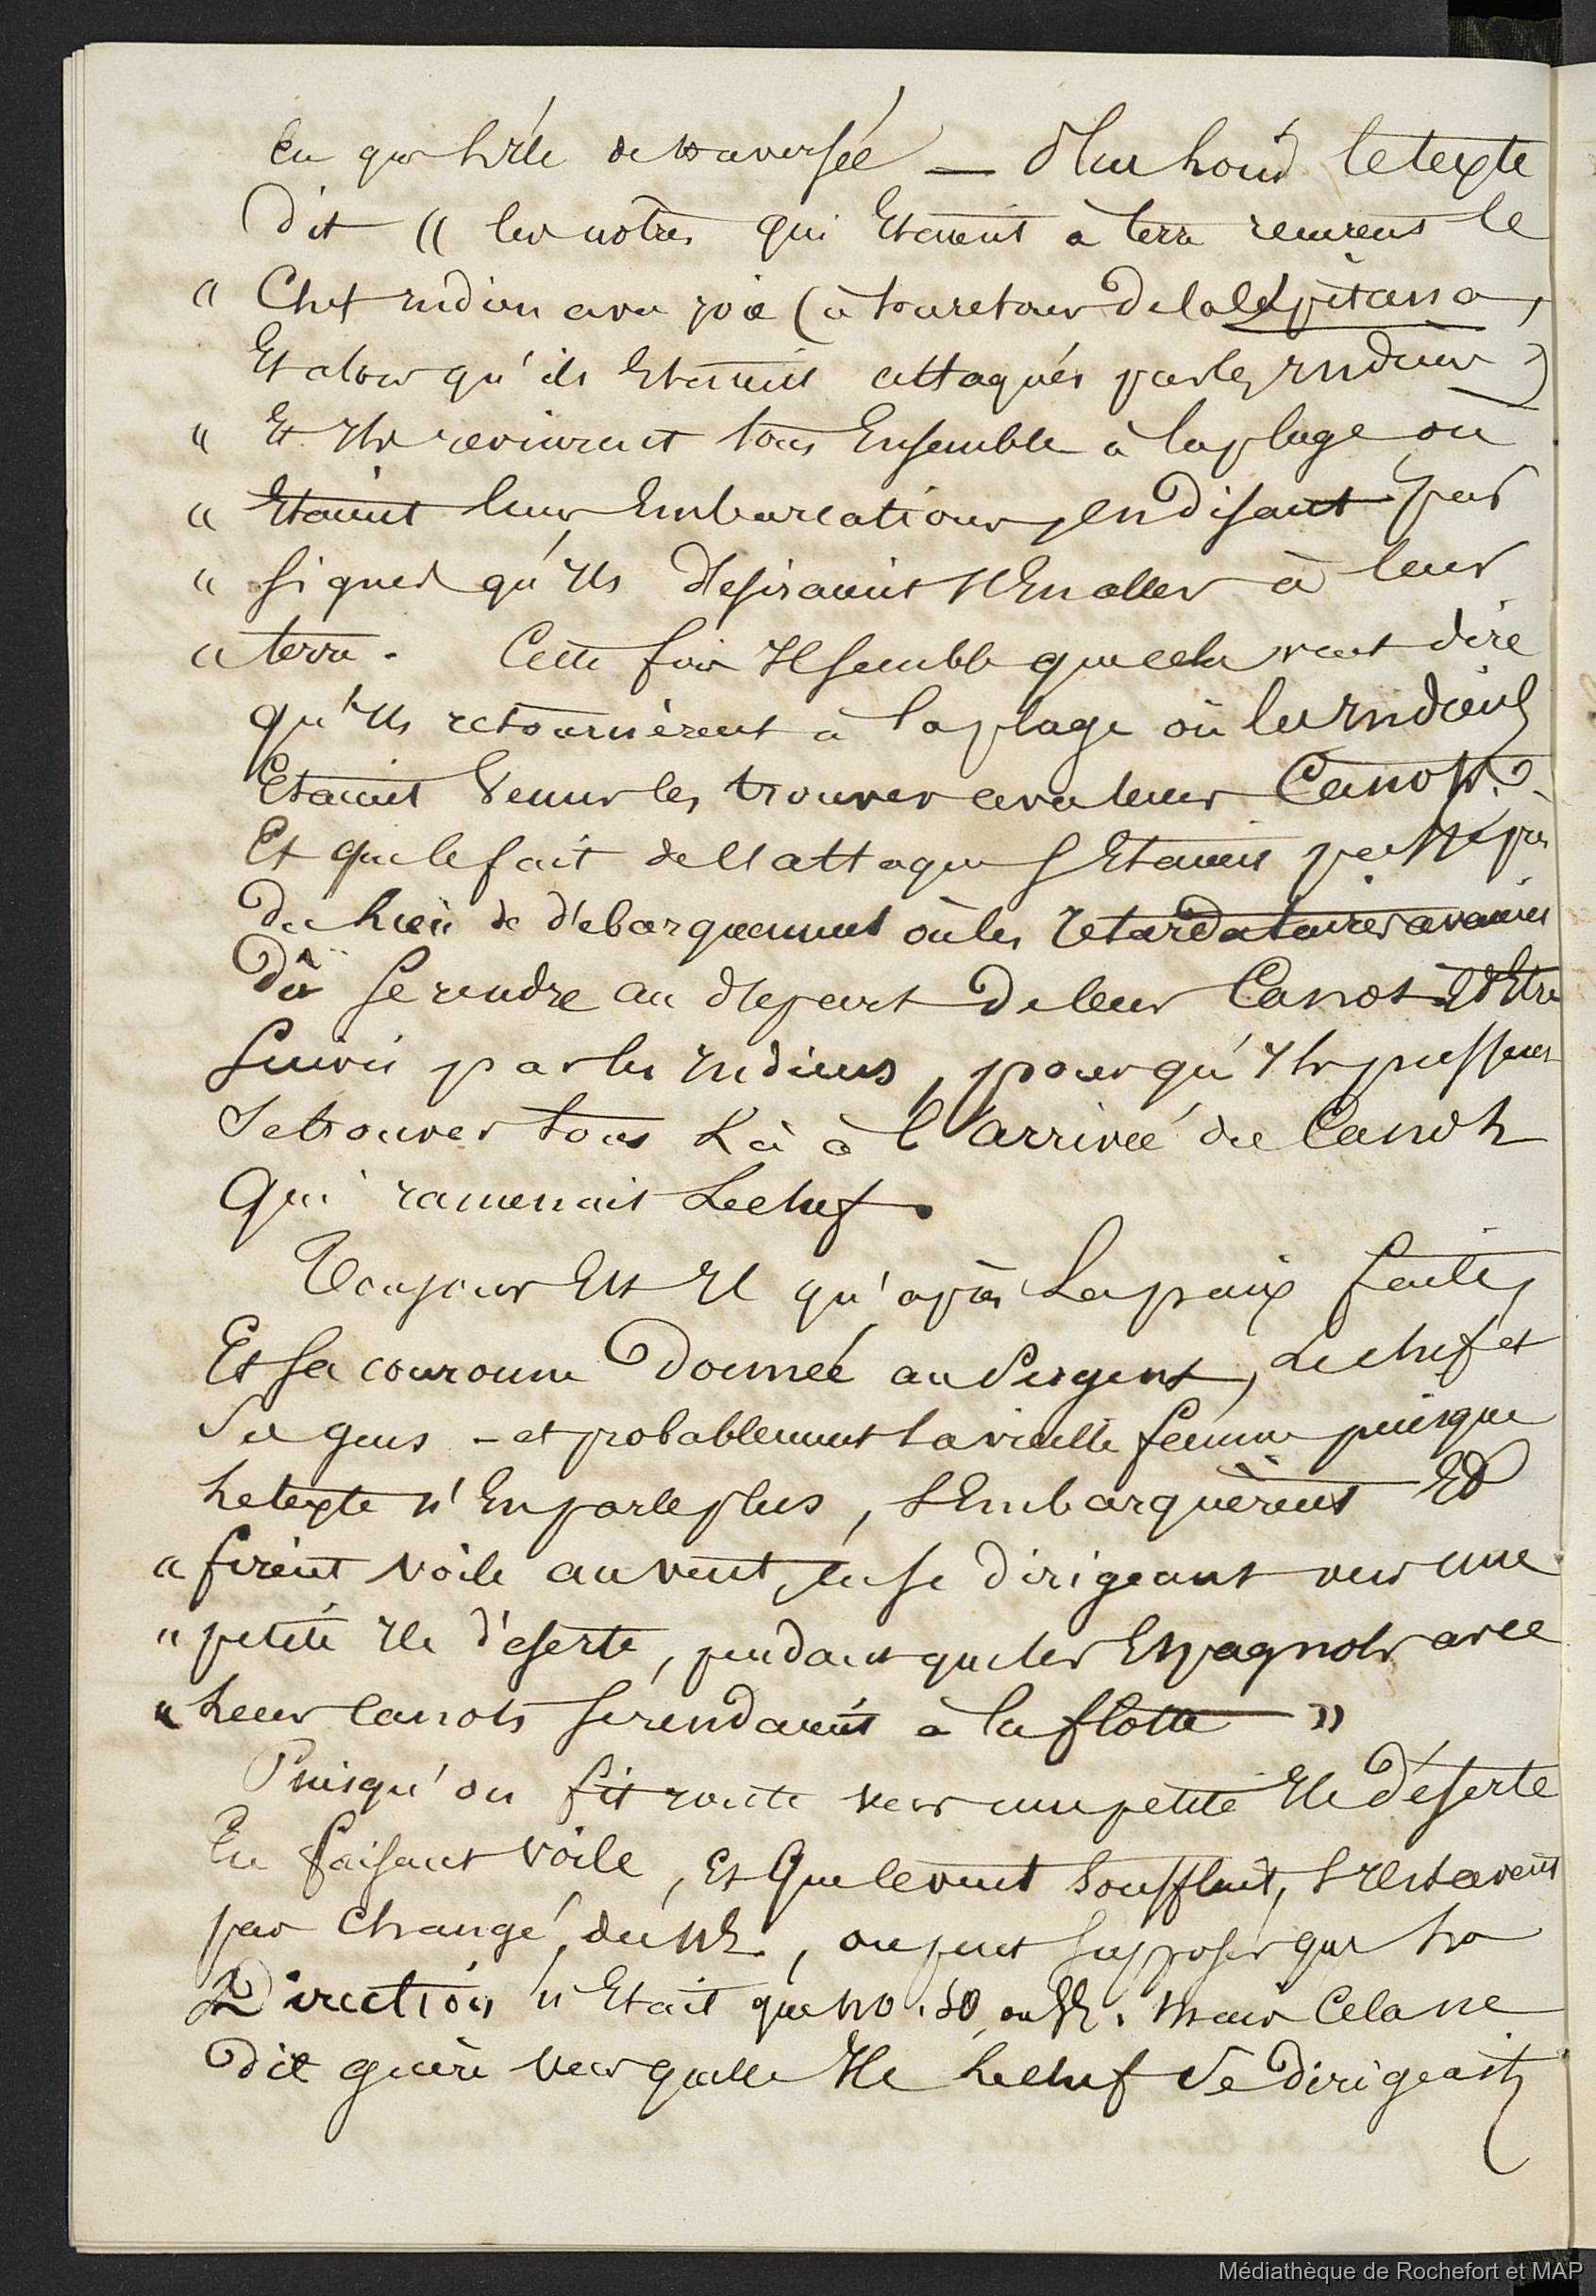 en quelle de traversée — Plus loin le texte
dit « les notres qui Etaient à terre reçurent le
« Chef indien avec joie (à son retour de la Capitana,
Et alors qu'ils Etaient attaqués par les Indiens)
« Et Ils revinrent tous Ensemble à la plage où
« Etaient leurs Embarcations, en disant par
« signes qu'Ils desiraient s'En aller à leur
« terre. Cette fois Il semble que cela veut dire
qu'Ils retournèrent à la plage où les Indiens
Etaient venus les trouver avec leurs Canots.
Et que le fait de l'attaque s'Etant passé près
du lieu de débarquement où les retardataires avaient
dû se rendre au départ de leur Canot Et Etre
suivis par les Indiens, pour qu'Ils pussent
se trouver tous là à l'arrivée du Canot
qui ramenait Le chef.
Toujours Est Il qu'après La paix faite,
Et sa couronne donnée au Sergent, Le chef et
ses gens - et probablement la vieille femme puisque
le texte n'En parle plus, s'Embarquèrent Et
« firent voile au vent, en se dirigeant vers une
« petite Ile déserte, pendant que les Espagnols avec
« leurs canots se rendaient à la flotte »
Puisqu'on fit route vers une petite Ile déserte
En faisant voile, Et que le vent soufflait, s'Il n'avait
pas changé, du NE., on peut supposer que la
Direction n'Etait que NO. SO, ou SE. Mais Cela ne
dit guère vers quelle Ile Le chef se dirigeait,
Médiathèque de Rochefort et MAP